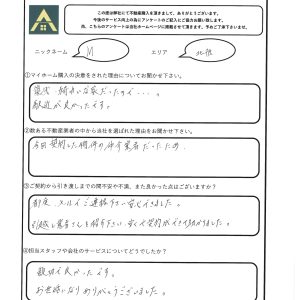 この度は弊社にて不動産購入を頂きまして、ありがとうございます。
今後のサービス向上の為にアンケートのご記入にご協力お願い致します。
尚、こちらのアンケートは当社ホームページに掲載させて頂きます。予めご了承下さいませ。
ニックネーム M エリア
①マイホーム購入の決意をされた理由についてお聞かせ下さい。
だったので・・・。
が良かったです。
②数ある不動産業者の中から当社を選ばれた理由をお聞かせ下さい。
今回契約した物件の仲介業者だったため
③ご契約から引き渡しまでの間不安や不満、また良かった点はございますか？
都度、メールでご連絡下さい
引越し業者さんを紹介下さい
④担当スタッフや会社のサービスについてどうでしたか？
親切で良かったです。
お世話になりありがとうございました。